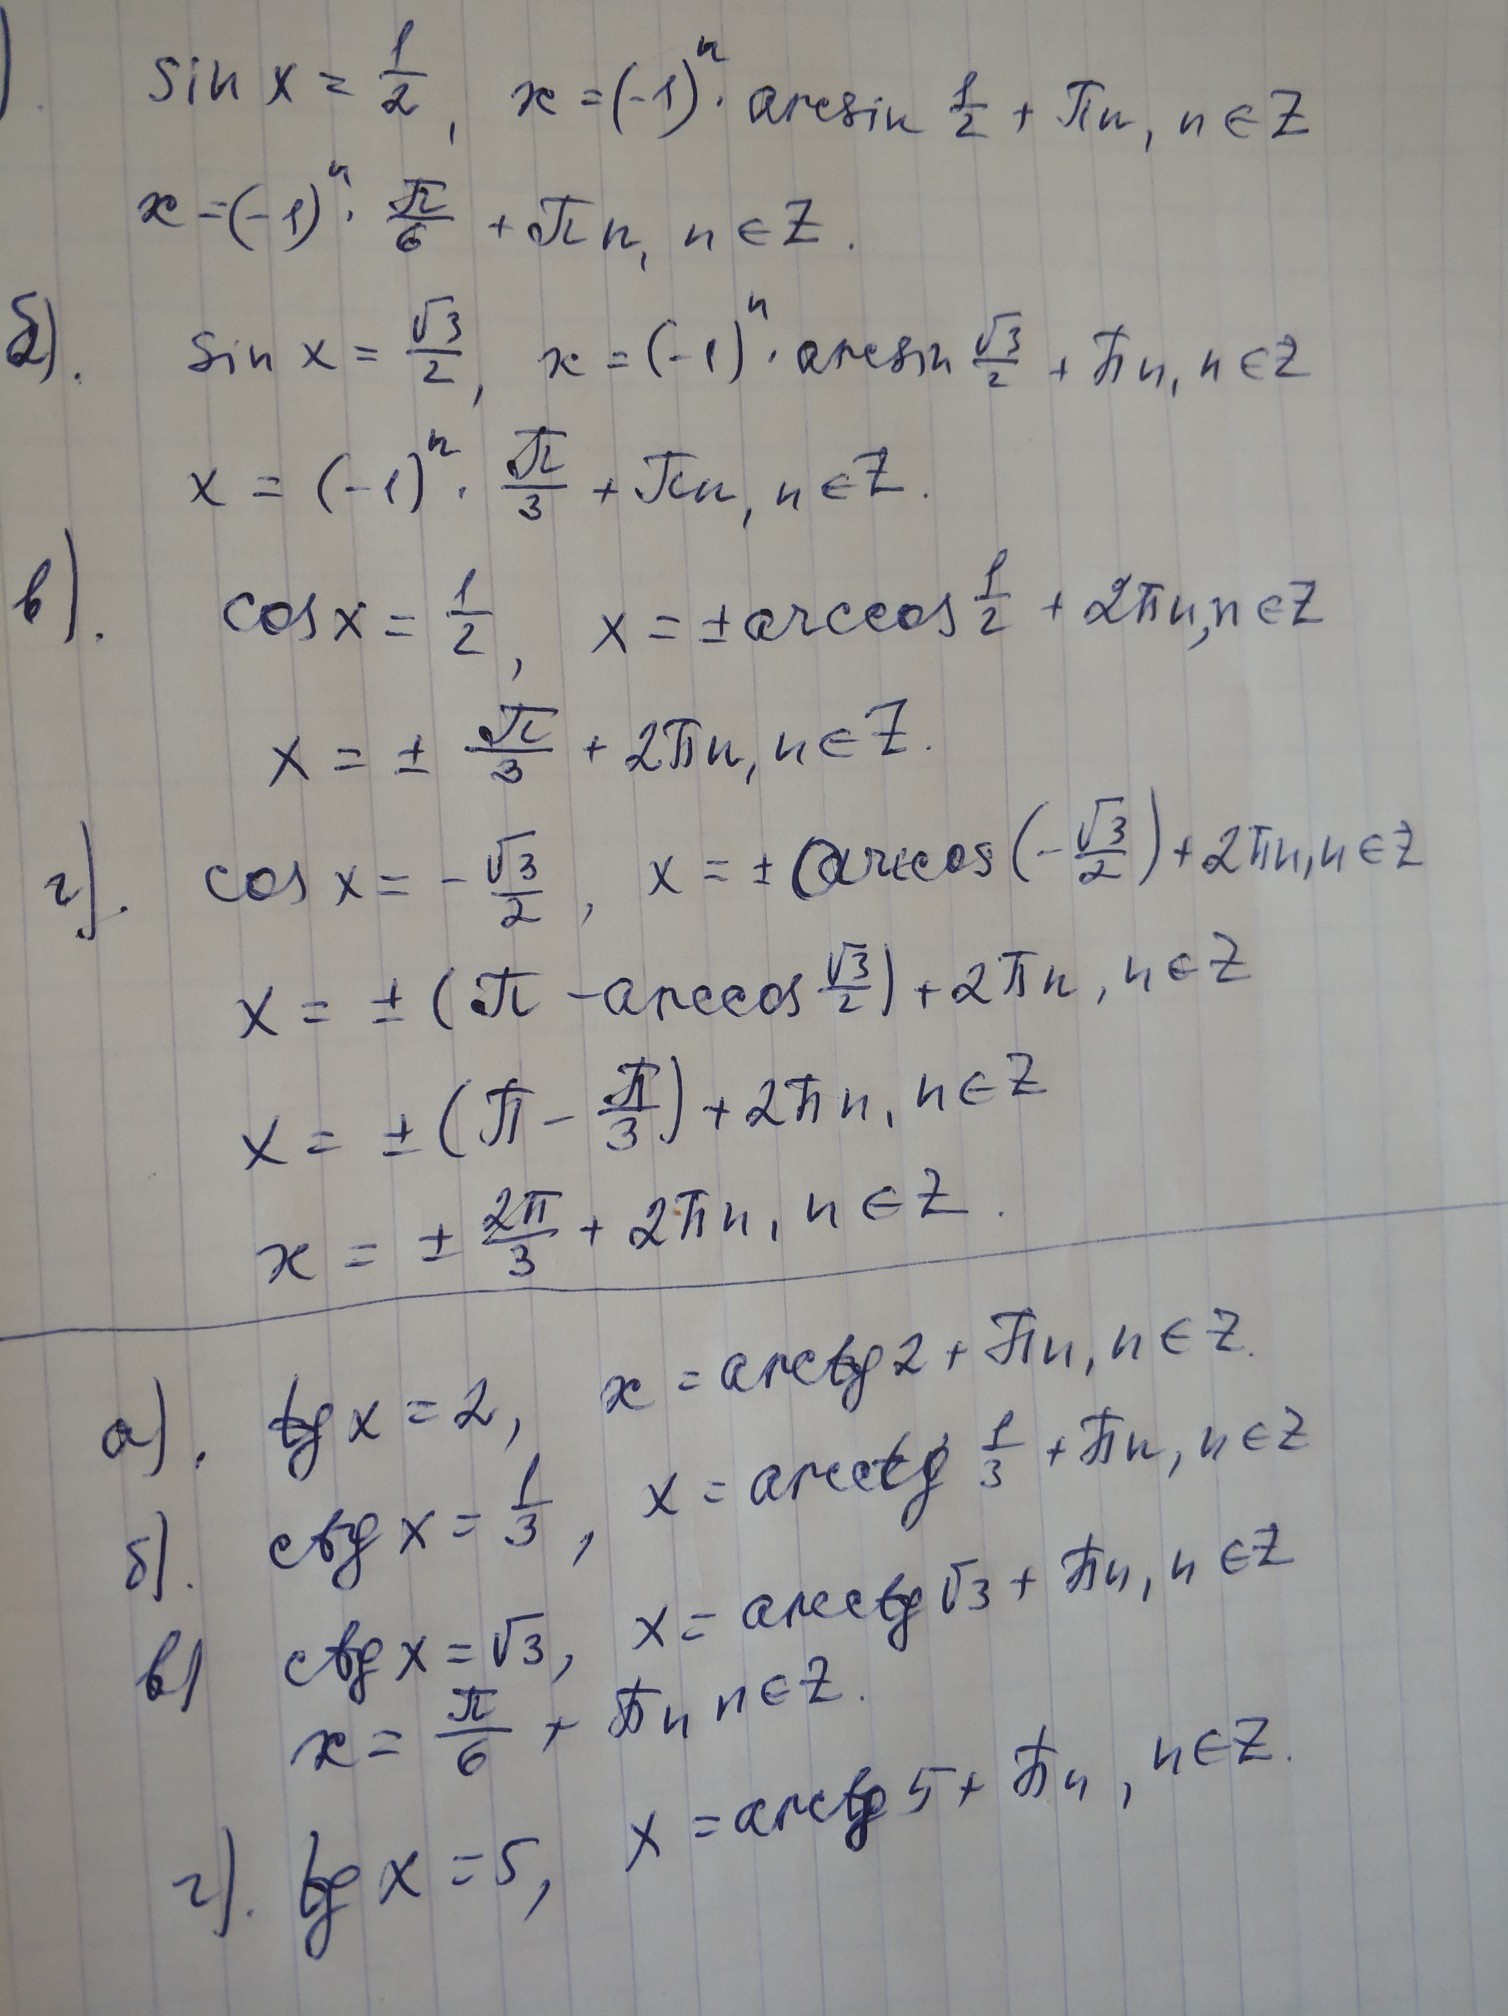 ) sin x = 1/2, x = (-1)ⁿ · arcsin 1/2 + πn, n ∈ Z
x = (-1)ⁿ · π/6 + πn, n ∈ Z.
б). sin x = √3/2, x = (-1)ⁿ · arcsin √3/2 + πn, n ∈ Z
x = (-1)ⁿ · π/3 + πn, n ∈ Z.
в). cos x = 1/2, x = ± arccos 1/2 + 2πn, n ∈ Z
x = ± π/3 + 2πn, n ∈ Z.
г). cos x = -√3/2, x = ± arccos (-√3/2) + 2πn, n ∈ Z
x = ± (π - arccos √3/2) + 2πn, n ∈ Z
x = ± (π - π/3) + 2πn, n ∈ Z
x = ± 2π/3 + 2πn, n ∈ Z.
а). tg x = 2, x = arctg 2 + πn, n ∈ Z.
б). ctg x = 1/3, x = arcctg 1/3 + πn, n ∈ Z
в) ctg x = √3, x = arcctg √3 + πn, n ∈ Z
x = π/6 + πn n ∈ Z.
г). tg x = 5, x = arctg 5 + πn, n ∈ Z.